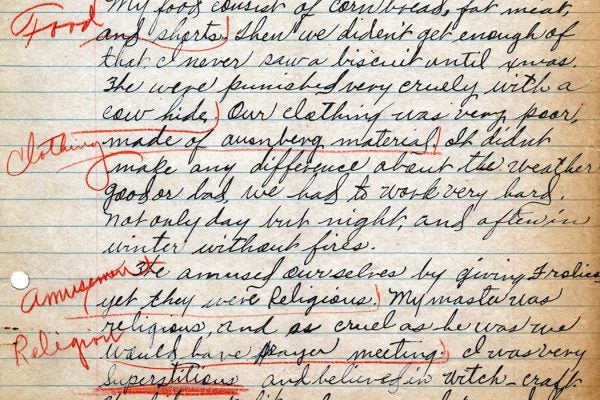 My food consist of cornbread, fat meat,
Food and shorts. Then we dident get enough of
that I never saw a biscuit until xmas.
We were punished very cruely with a
cow hide) Our clothing was very poor,
Clothing made of ausnberg material) It didnt
make any difference about the weather
good or bad, we had to work very hard.
Not only day but night, and often in
winter without fires.
Amusement We amused ourselves by giving Frolics
yet they were Religious.) My master was
Religion religious, and as cruel as he was we
would have prayer meeting.) I was very
Superstitious and believed in witch-craft